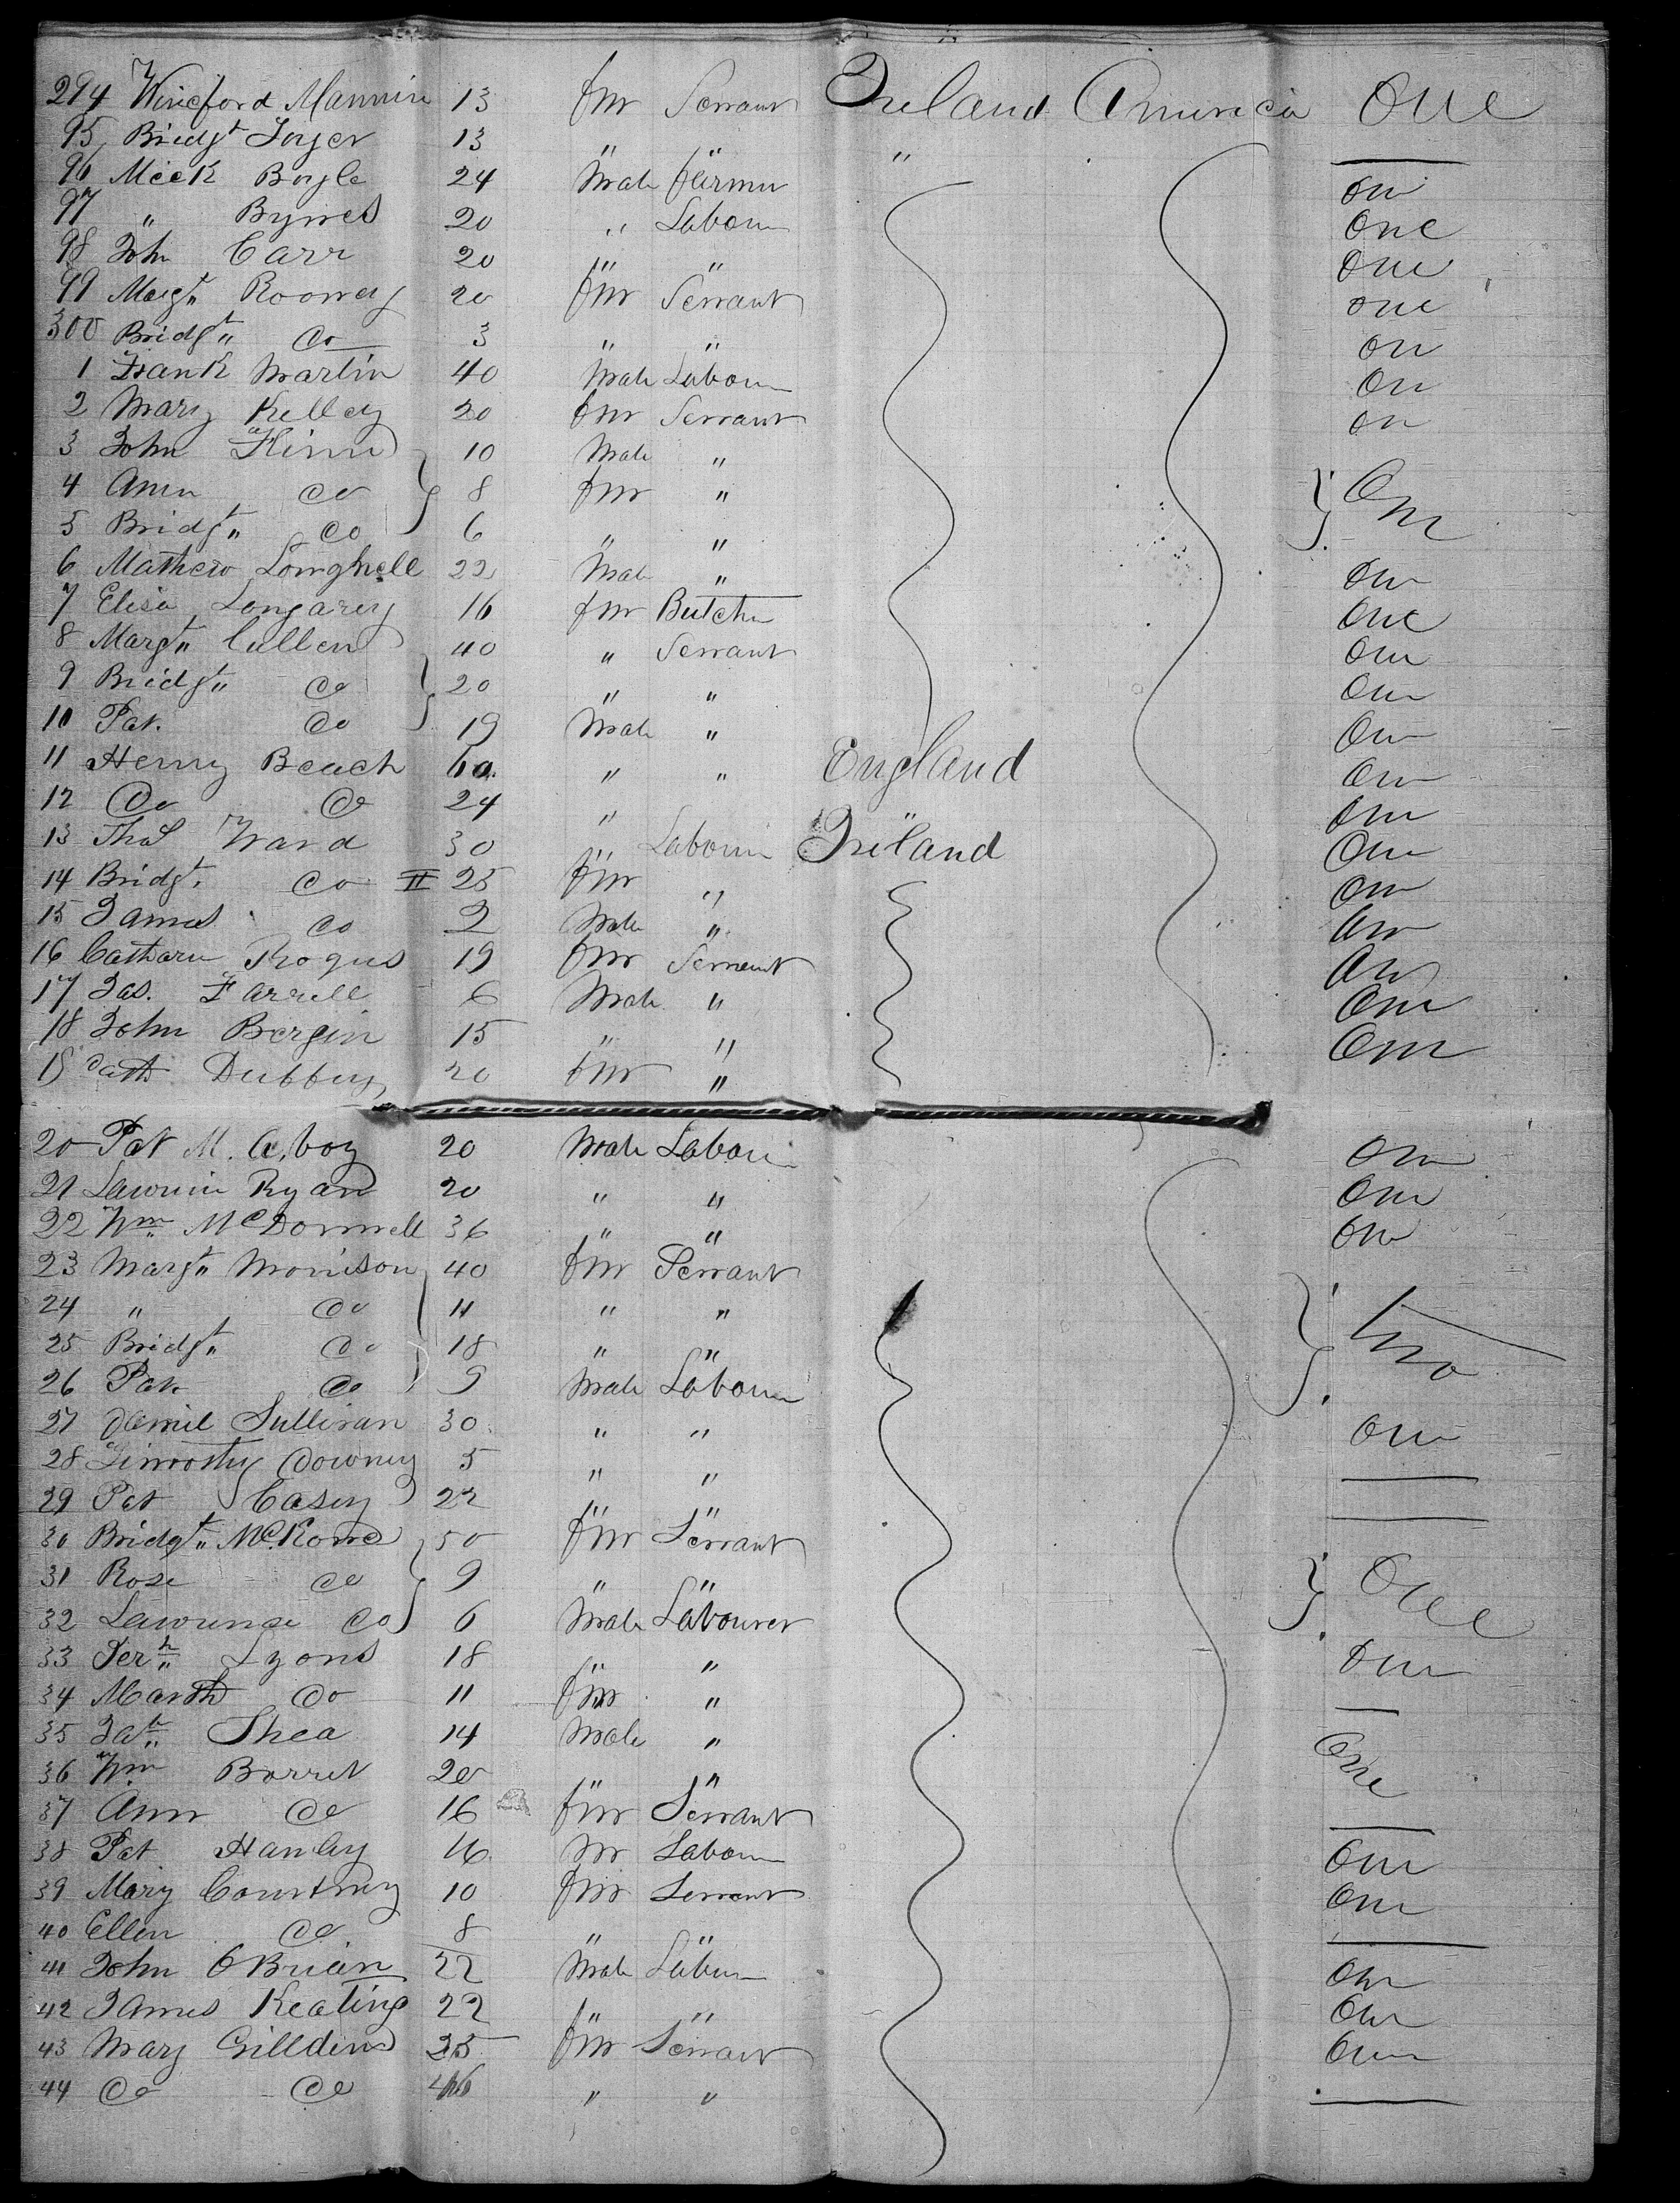 294 Wineford Mannin 13 fm Servant Ireland America One
95 Bridgt Joyer 13 " " "
96 Mick Boyle 24 Male Farmer on
97 " Byrnes 20 " Labour One
98 John Carr 20 " " One
99 Margt" Rooney 20 fm Servant one
300 Bridgt" Do 3 " " on
1 Frank Martin 40 Male Labour On
2 Mary Kelley 20 fm Servant on
3 John Flinn 10 Male "
4 Ann do 8 fm " On
5 Bridgt" do 6 " "
6 Mathew Longhell 22 Male " On
7 Elisa Longarey 16 fm Butcher One
8 Margt" Cullen 40 " Servant On
9 Bridgt" do 20 " " On
10 Pat. do 19 Male " On
11 Henry Beach 60 " " England On
12 Do Do 24 " " On
13 Thos Ward 30 Labour Ireland On
14 Bridgt. do 25 fm " On
15 James do 2 Male " On
16 Catharn Rogus 19 fm Servant On
17 Jas. Farrell 6 Male " On
18 John Bergin 15 " " On
19 Cath Dubbey 20 fm "
20 Pat 20 Male Labour On
21 Ryan 20 " " On
22 Wm McDonnell 36 " " On
23 Margt" Morrison 40 fm Servant
24 " do 11 " " two
25 Bridgt" Do 18 " "
26 Pat. do 9 Male Labour
27 Daniel Sullivan 30 " " On
28 Timothy Downey 5 " "
29 Pat Casey 22 " "
30 Bridgt" McKone 50 fm Servant
31 Rose do 9 " " One
32 do 6 Male Labourer
33 Jerh" Lyons 18 " " On
34 Marth Do 11 fm "
35 Shea 14 Male " One
36 Wm Borret 20 " "
37 Ann do 16 fm Servant
38 Pat Hanley 16 m Labour On
39 Mary Courtney 10 fm Servant On
40 Ellen do 8 " "
41 John OBrian 22 Male Labour On
42 James Keating 22 " " On
43 Mary Gilldin 25 fm Servant On
44 do do " "